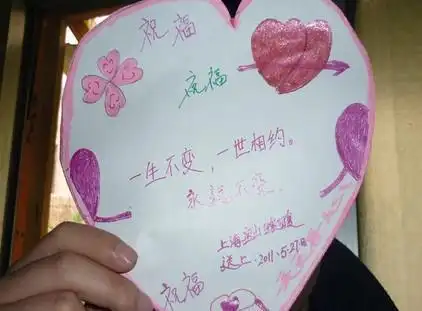 祝福
祝福
一生不变，一世相约。
永远不变
上海宝山
送上.2011.5.27日
祝福